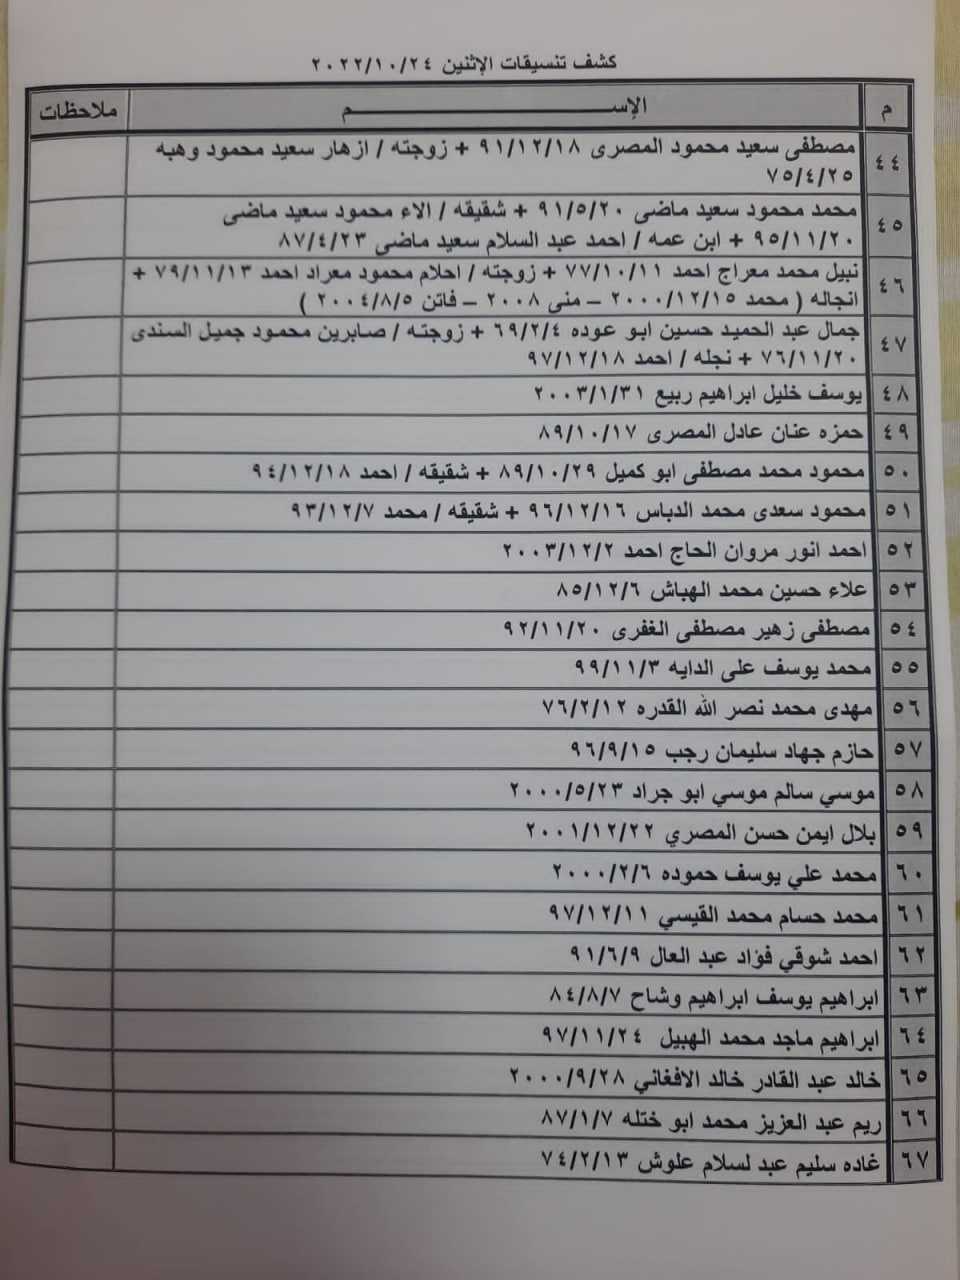 كشف تنسيقات الإثنين ٢٠٢٢/١٠/٢٤
م الإســـــــم ملاحظات
٤٤ مصطفى سعيد محمود المصرى ٩١/١٢/١٨ + زوجته / ازهار سعيد محمود وهبه
٧٥/٤/٢٥
٤٥ محمد محمود سعيد ماضى ٩١/٥/٢٠ + شقيقه / الاء محمود سعيد ماضى
٩٥/١١/٢٠ + ابن عمه / احمد عبد السلام سعيد ماضى ٨٧/٤/٢٣
٤٦ نبيل محمد معراج احمد ٧٧/١٠/١١ + زوجته / احلام محمود معراد احمد ٧٩/١١/١٣ +
انجاله ( محمد ٢٠٠٠/١٢/١٥ – منى ٢٠٠٨ – فاتن ٢٠٠٤/٨/٥ )
٤٧ جمال عبد الحميد حسين ابو عوده ٦٩/٢/٤ + زوجته / صابرين محمود جميل السندى
٧٦/١١/٢٠ + نجله / احمد ٩٧/١٢/١٨
٤٨ يوسف خليل ابراهيم ربيع ٢٠٠٣/١/٣١
٤٩ حمزه عنان عادل المصرى ٨٩/١٠/١٧
٥٠ محمود محمد مصطفى ابو كميل ٨٩/١٠/٢٩ + شقيقه / احمد ٩٤/١٢/١٨
٥١ محمود سعدى محمد الدباس ٩٦/١٢/١٦ + شقيقه / محمد ٩٣/١٢/٧
٥٢ احمد انور مروان الحاج احمد ٢٠٠٣/١٢/٢
٥٣ علاء حسين محمد الهباش ٨٥/١٢/٦
٥٤ مصطفى زهير مصطفى الغفرى ٩٢/١١/٢٠
٥٥ محمد يوسف على الدايه ٩٩/١١/٣
٥٦ مهدى محمد نصر الله القدره ٧٦/٢/١٢
٥٧ حازم جهاد سليمان رجب ٩٦/٩/١٥
٥٨ موسي سالم موسي ابو جراد ٢٠٠٠/٥/٢٣
٥٩ بلال ايمن حسن المصري ٢٠٠١/١٢/٢٢
٦٠ محمد علي يوسف حموده ٢٠٠٠/٢/٦
٦١ محمد حسام محمد القيسي ٩٧/١٢/١١
٦٢ احمد شوقي فؤاد عبد العال ٩١/٦/٩
٦٣ ابراهيم يوسف ابراهيم وشاح ٨٤/٨/٧
٦٤ ابراهيم ماجد محمد الهبيل ٩٧/١١/٢٤
٦٥ خالد عبد القادر خالد الافغاني ٢٠٠٠/٩/٢٨
٦٦ ريم عبد العزيز محمد ابو ختله ٨٧/١/٧
٦٧ غاده سليم عبد لسلام علوش ٧٤/٢/١٣